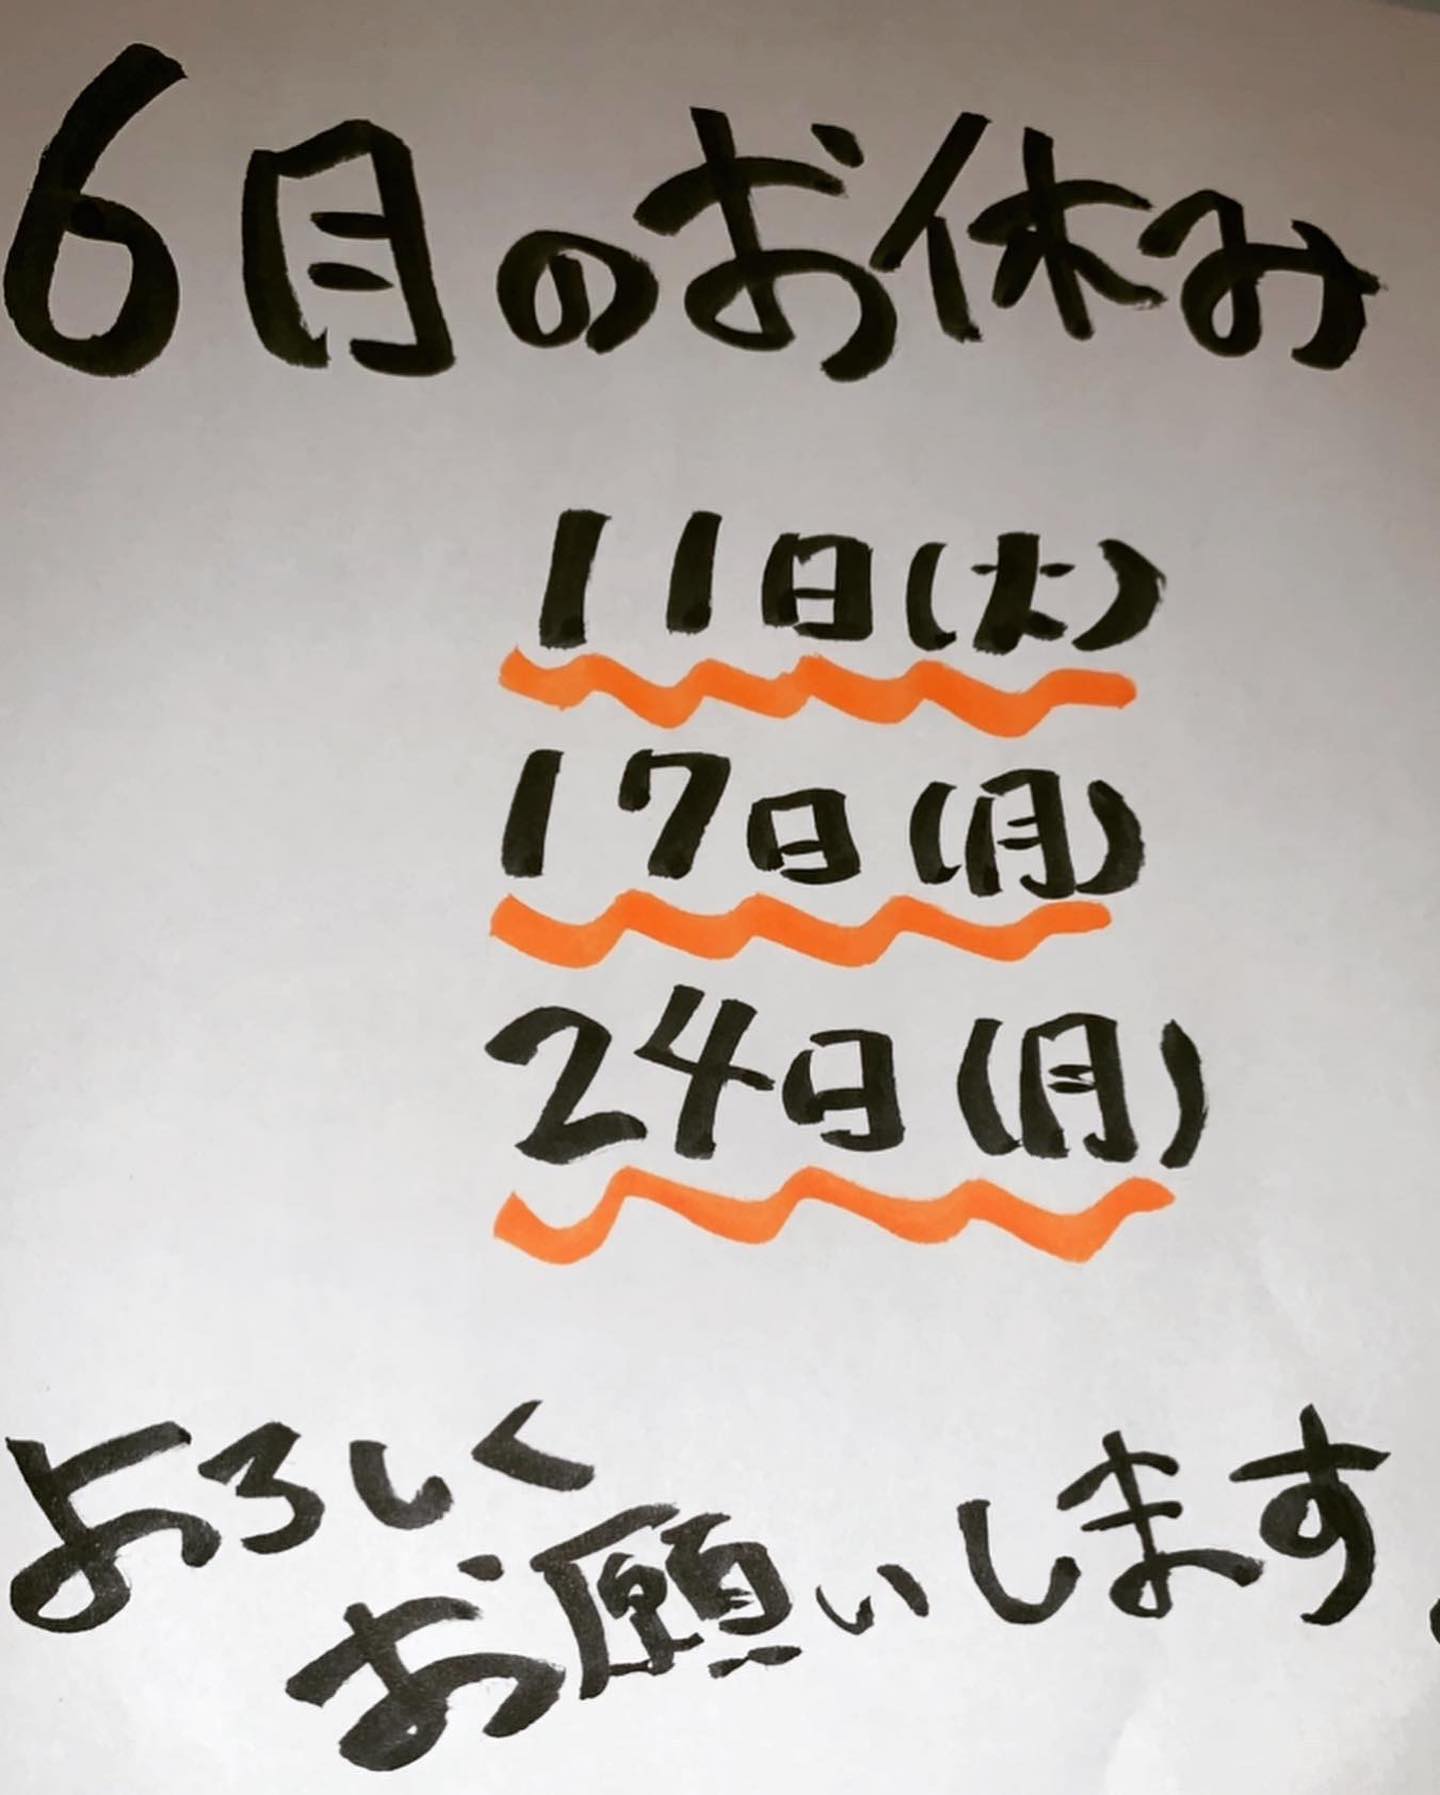 6月のお休み
11日(火)
17日(月)
24日(月)
よろしく
お願いします